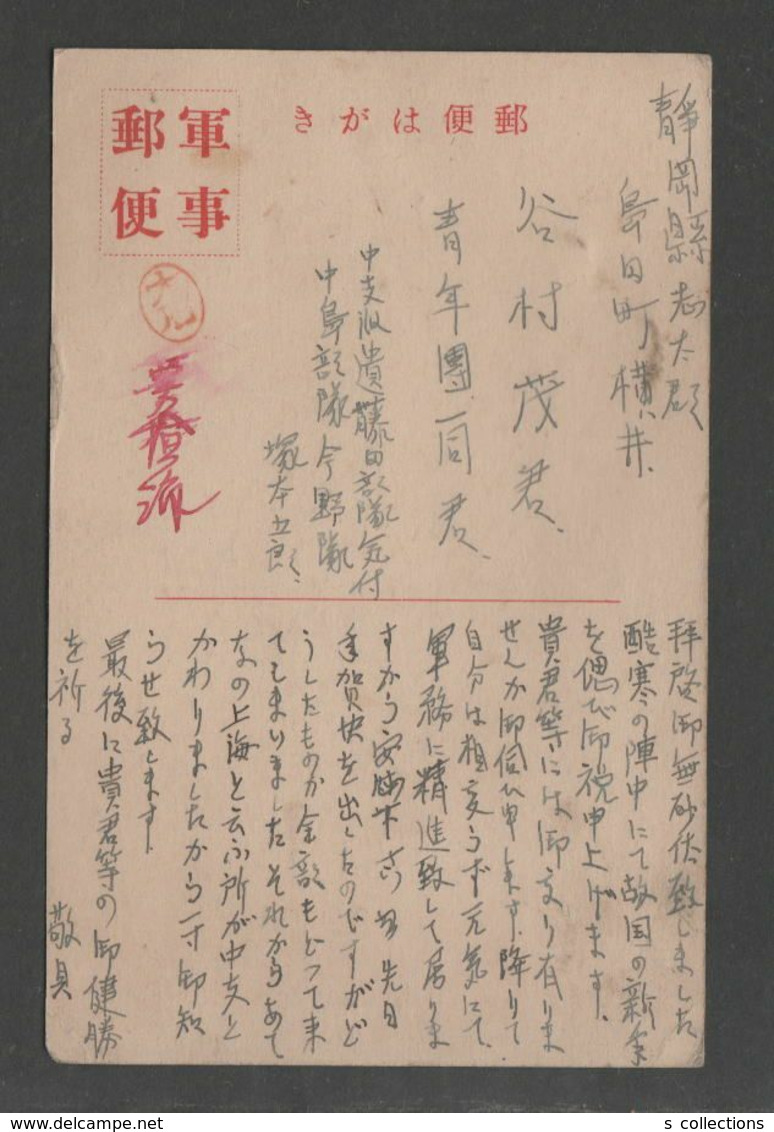 郵便はがき
軍事
郵便
靜岡縣志太郡
島田町横井
谷村茂君、
青年團一同君、
中支派遣藤田部隊気付
中島部隊今野隊
塚本五郎、
拝啓御無砂伏致しました
酷寒の陣中にて故国の新年
を偲び御祝申上げます、
貴君等には御変り有りま
せんか御伺ひ申します、降りて
自分は相変らず元気にて
軍務に精進致して居りま
すから安心下さい 先日
年賀状を出したのですがど
うしたものか全部もどって来
てしまりましたそれからあて
なの上海と云ふ所が中支と
かわりましたから一寸御知
らせ致します、
最後に貴君等の御健勝
を祈る
敬具
s collections
delcampe.net